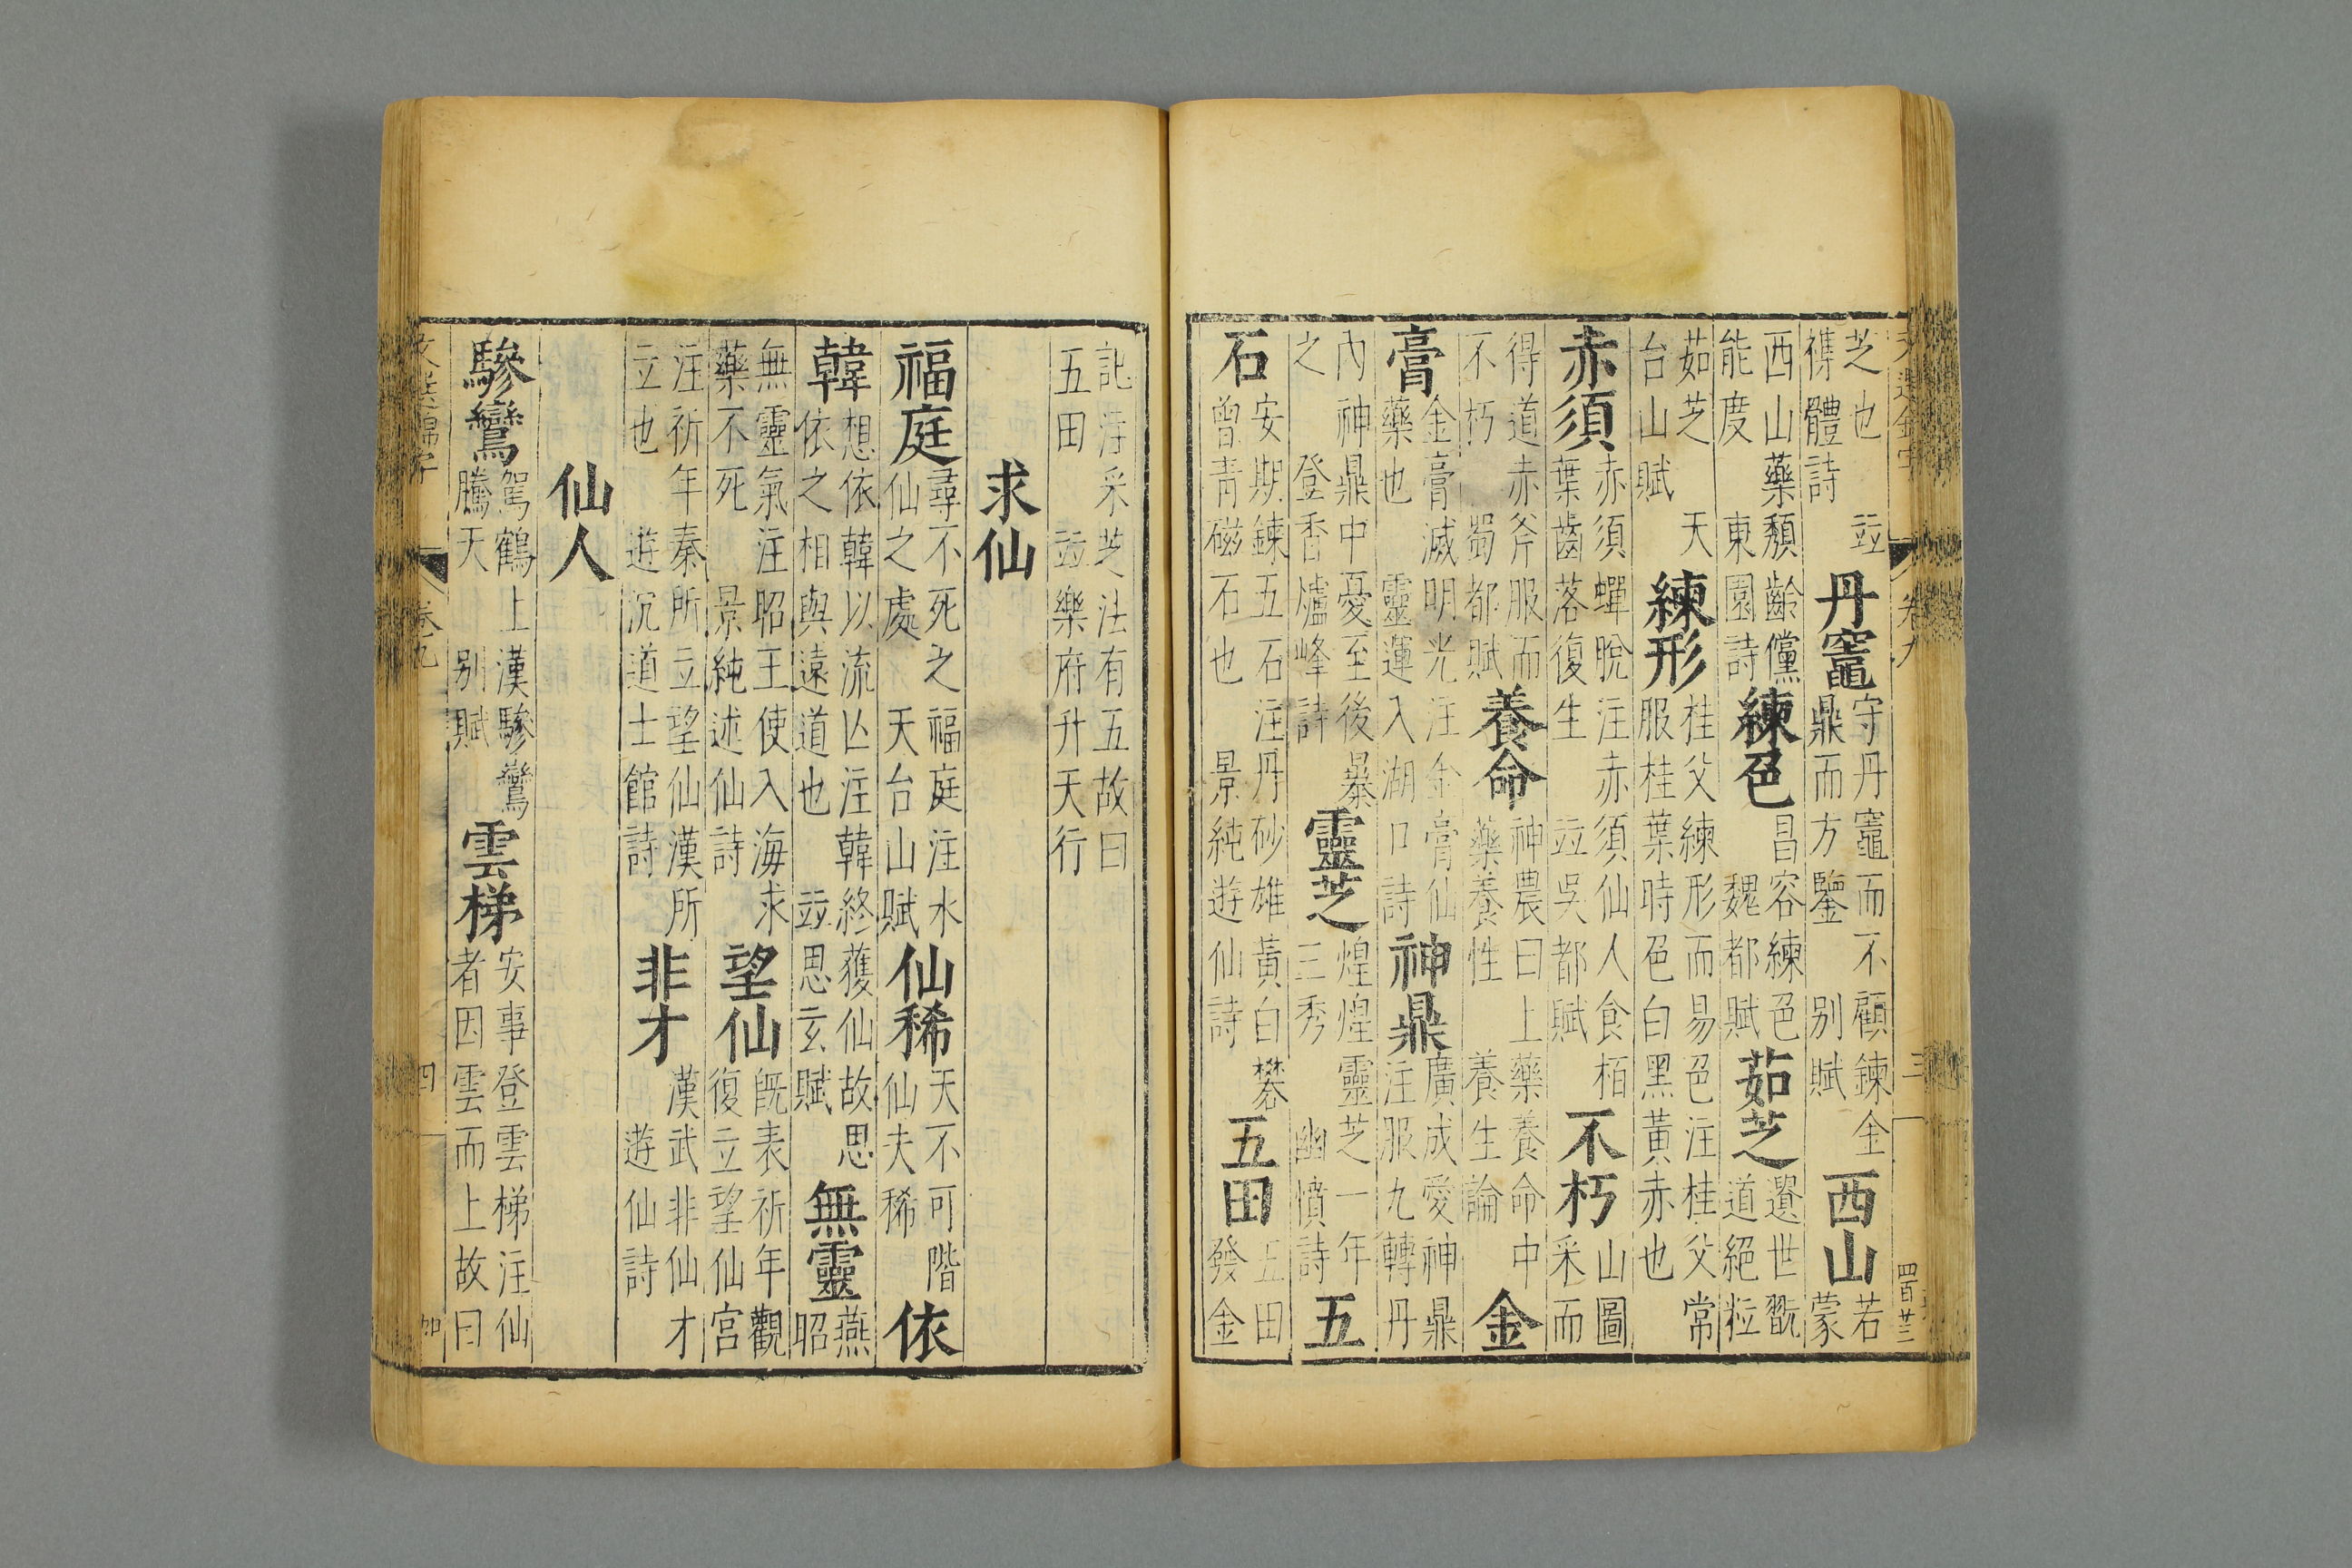 芝也　並丹竈守丹竈而不顧鍊金西山若
襍體詩　鼎而方鑒　別賦　蒙
西山藥頹齡儻練色昌容練色茹芝遺世翫
能度　東園詩　魏都賦　道絕粒
茹芝　天練形桂父練形而易色注桂父常
台山賦　服桂葉時色白黑黃赤也
赤須赤須蟬脫注赤須仙人食栢不朽山圖
葉齒落復生　並吳都賦　采而
得道赤斧服而養命神農曰上藥養命中金
不朽　蜀都賦　藥養性　養生論
膏金膏滅明光注金膏仙神鼎廣成愛神鼎
藥也　靈運入湖口詩　注服九轉丹
內神鼎中憂至後暴靈芝煌煌靈芝一年五
之　登香爐峰詩　三秀　幽憤詩
石安期鍊五石注丹砂雄黃白礬五田五田
曾青磁石也　景純遊仙詩　發金
卷九
三
四百廿三
記注采芝法有五故曰
五田　並樂府升天行
求仙
福庭尋不死之福庭注水仙稀天不可階依
仙之處　天台山賦　仙夫稀
韓想依韓以流亾注韓終獲仙故思無靈燕
依之相與遠道也　並思玄賦　昭
無靈氣注昭王使入海求望仙旣表祈年觀
藥不死　景純述仙詩　復立望仙宮
注祈年秦所立望仙漢所非才漢武非仙才
立也　遊沉道士館詩　遊仙詩
仙人
驂鸞駕鶴上漢驂鸞雲梯安事登雲梯注仙
騰天　別賦　者因雲而上故曰
文選錦字
卷九
四